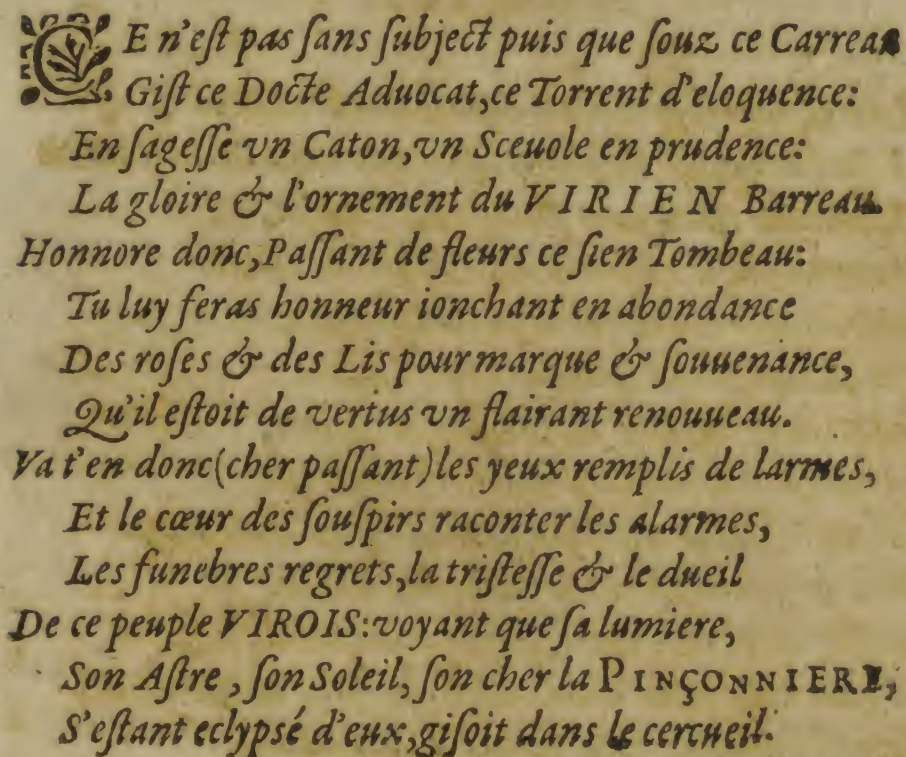 CE n'eſt pas ſans ſubject puis que ſouz ce Carreau
Giſt ce Docte Aduocat, ce Torrent d'eloquence:
En ſageſſe vn Caton, vn Sceuole en prudence:
La gloire & l'ornement du VIRIEN Barreau.
Honnore donc, Paſſant de fleurs ce ſien Tombeau:
Tu luy feras honneur ionchant en abondance
Des roſes & des Lis pour marque & ſouuenance,
Qu'il eſtoit de vertus vn flairant renouueau.
Va t'en donc (cher paſſant) les yeux remplis de larmes,
Et le cœur des ſouſpirs raconter les alarmes,
Les funebres regrets, la triſteſſe & le dueil
De ce peuple VIROIS: voyant que ſa lumiere,
Son Aſtre, ſon Soleil, ſon cher la PINÇONNIERE,
S'eſtant eclypsé d'eux, giſoit dans le cercueil.